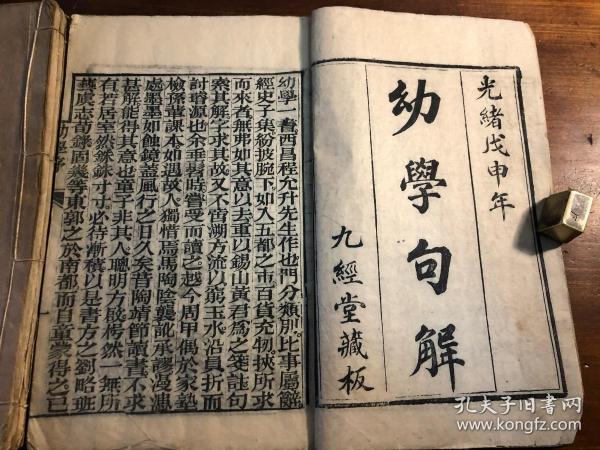 光緒戊申年
幼學句解
九經堂藏板
幼學一書西昌程允升先生作也門分類別比事屬辭
經史子集紛披腕下如入五都之市百貨充牣挾所求
而來者無弗如其意以去重以錫山黃君為之箋註句
索其解字求其故又不啻溯方流以窮玉水沿員折而
討璿源也余垂髫時嘗受而讀之越今周甲偶於家塾
檢孫輩課本如遇故人獨惜焉馬陶陰襲訛承謬漫漶
處墨墨如蝕鏡蓋風行之日久矣昔陶靖節讀書不求
甚解能得其意也童子非其人聰明方啟悕然一無所
有晢居室然銖銖寸寸必待漸積以是書方之劉略班
藝虞志荀錄固囊等東郭之於南都而自童蒙得之已
幼學序
孔夫子旧书网
www.kongfz.com